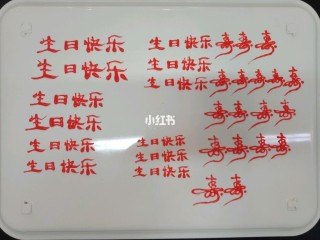 生日快乐
生日快乐
生日快乐
生日快乐
生日快乐
生日快乐
生日快乐 寿寿寿
生日快乐
生日快乐 寿寿寿寿寿
寿寿寿寿
生日快乐 寿寿寿寿
生日快乐
生日快乐
寿寿
小红书